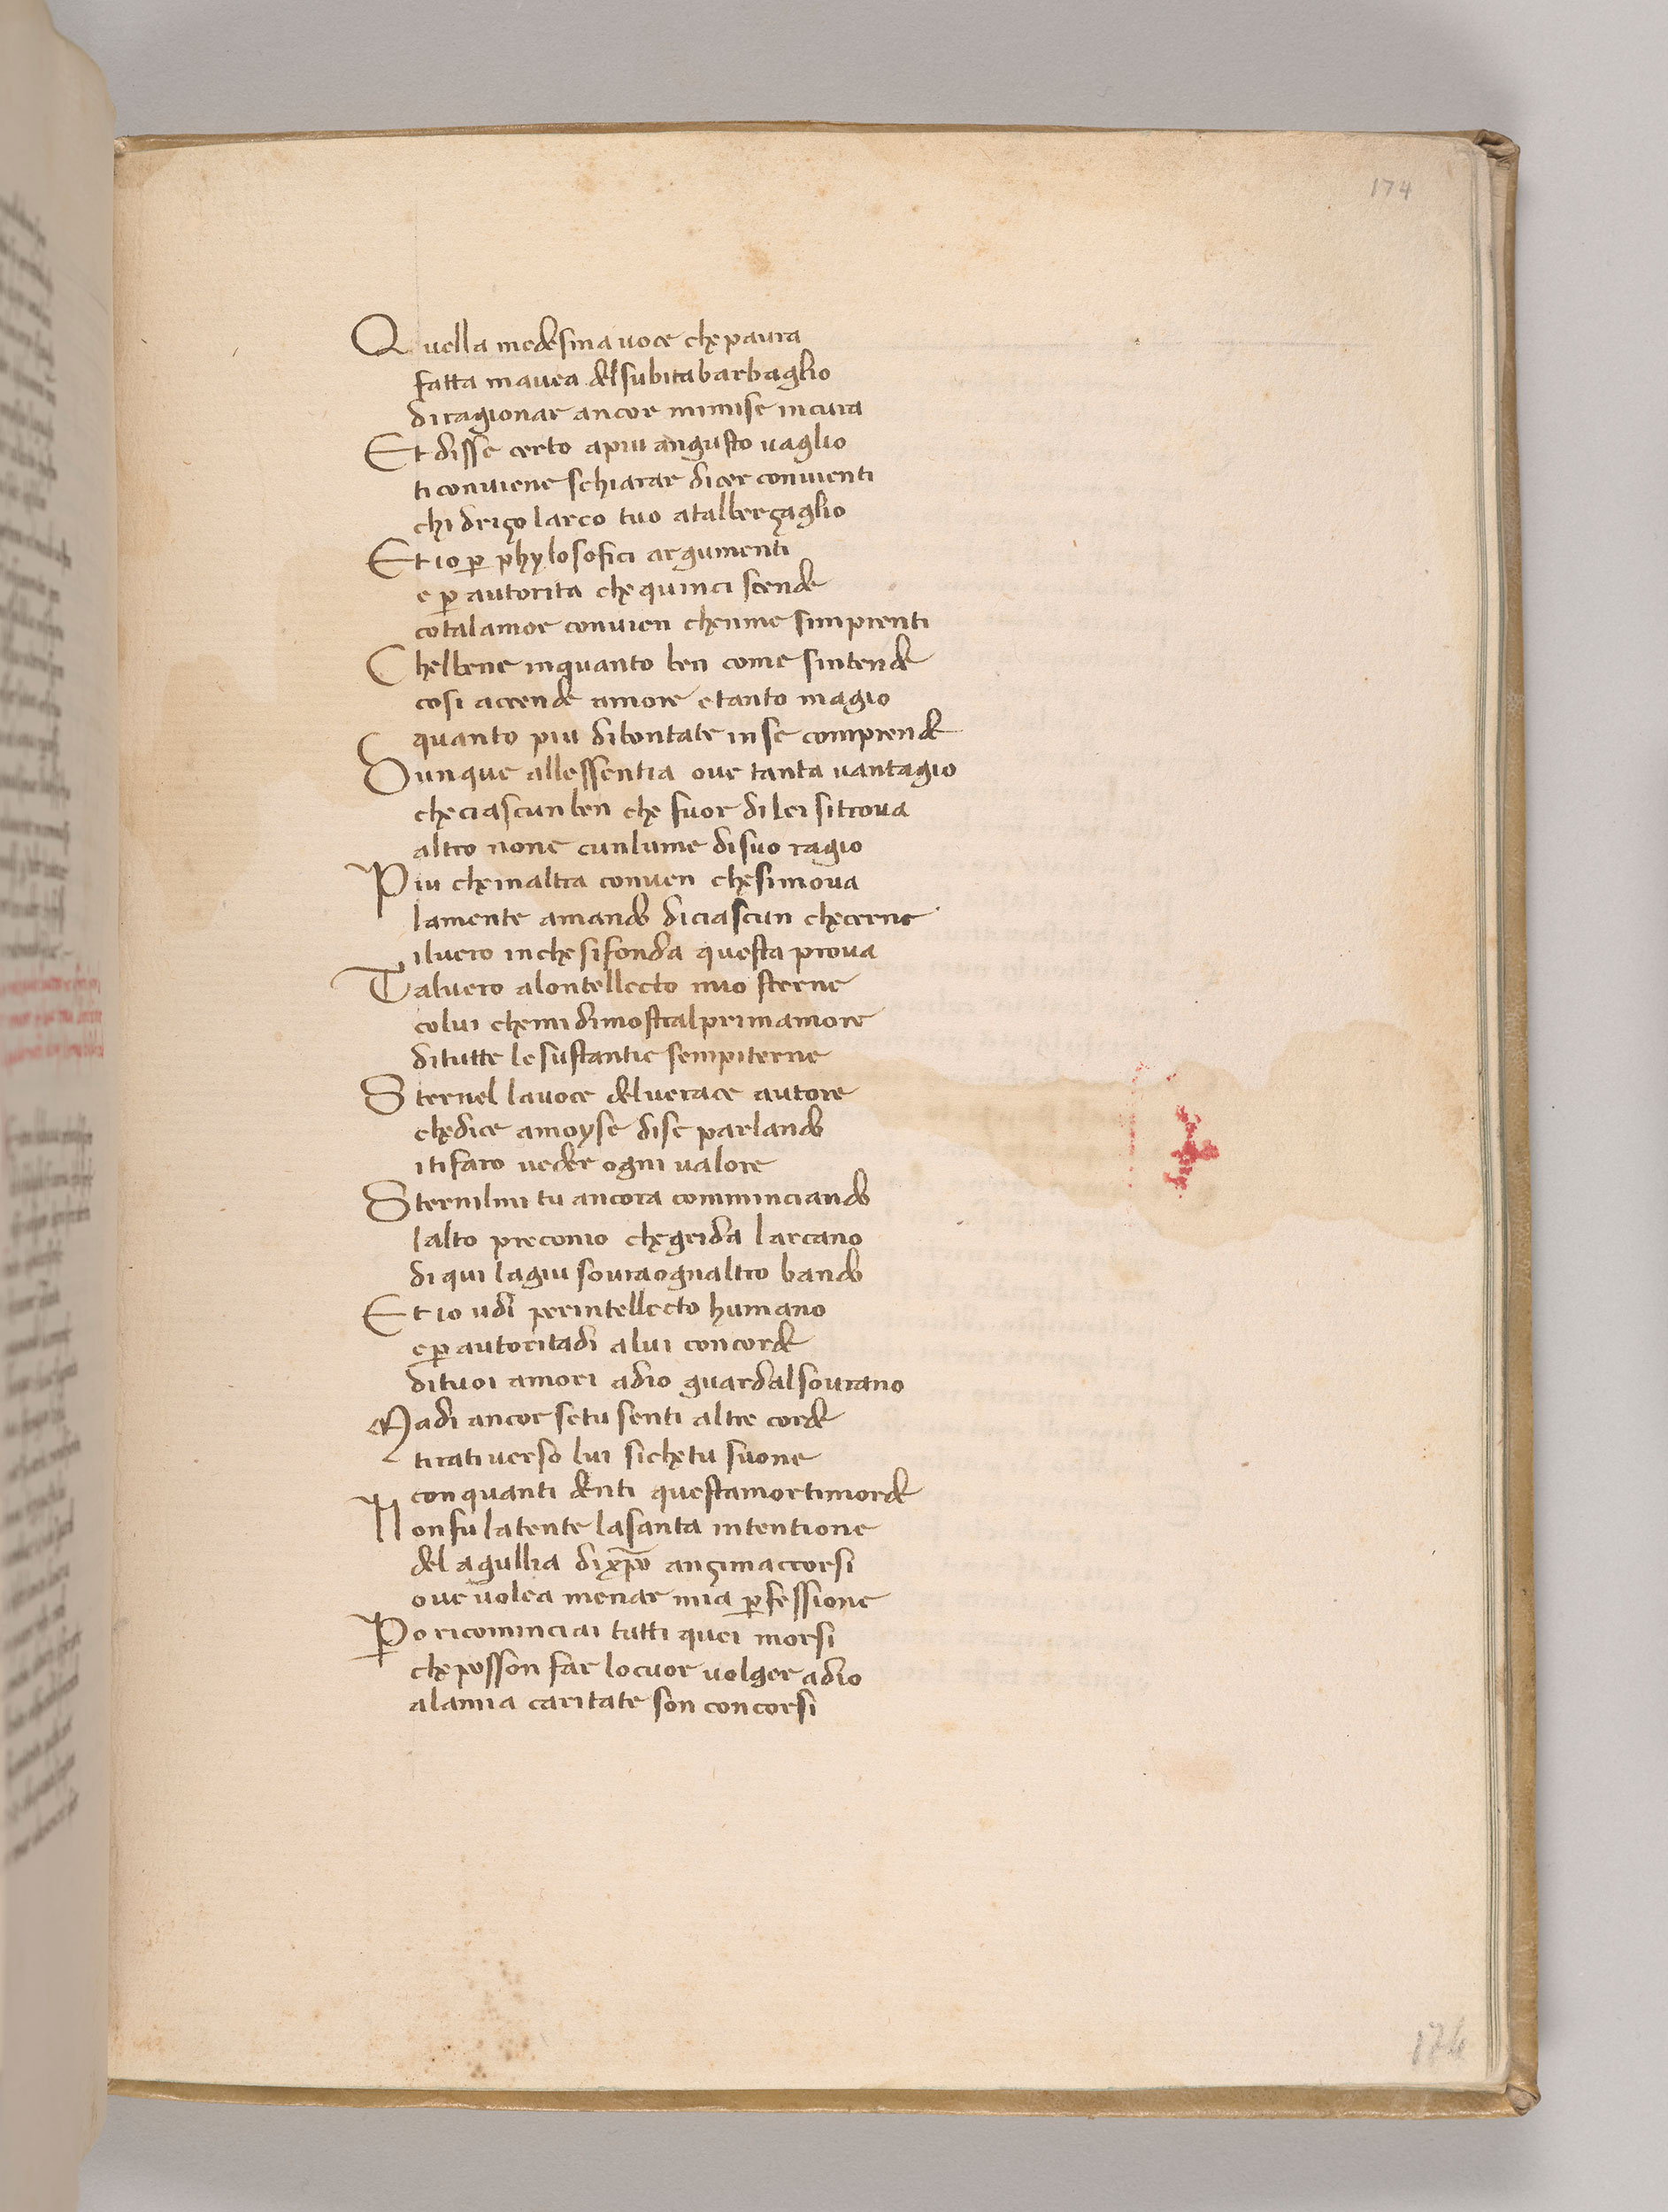 174
Quella medesma uoce che paura
fatta mauea del subita barbaglio
di ragionar ancor mi mise in cura
Et disse certo a piu angusto uaglio
ti conuiene schiarar dicer conuienti
chi drizo larco tuo a tal berzaglio
Et io ꝑ phylosofici argumenti
e ꝑ autorita che quinci scende
cotal amor conuien chenme simprenti
Chel bene in quanto ben come sintende
cosi accende amore e tanto magio
quanto piu di bontate in se comprende
Dunque allessentia oue tanta uantagio
che ciascun ben che fuor di lei si troua
altro none cun lume di suo ragio
Piu che in altra conuen che si moua
la mente amando di ciascun che cerne
il uero in che si fonda questa proua
Tal uero a lontellecto mio sterne
colui che mi dimostra l prim amore
di tutte le sustantie sempiterne
Sternel la uoce del uerace autore
che dice a moyse di se parlando
i ti faro ueder ogni ualore
Sternilmi tu ancora comminciando
lalto preconio che grida larcano
di qui la giu soura ogn altro bando
Et io udi per intellecto humano
e ꝑ autoritadi a lui concorde
di tuoi amori a dio guarda l sourano
Ma di ancor se tu senti altre corde
tirati uerso lui si che tu suone
con quanti denti quest amor ti morde
Non fu latente la santa intentione
del agullia di xp̅o anzi m accorsi
oue uolea menar mia ꝓfessione
Ꝑo ricominciai tutti quei morsi
che posson far lo cuor uolger a dio
a la mia caritate son concorsi
174